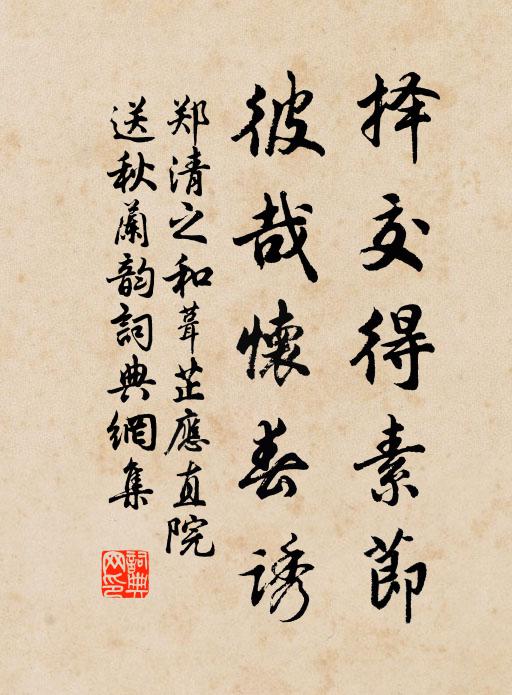 择交得素節
彼哉懷春诱
郑清之和葺芷應直院
送秋蘭韵詞典網集
詞典网印